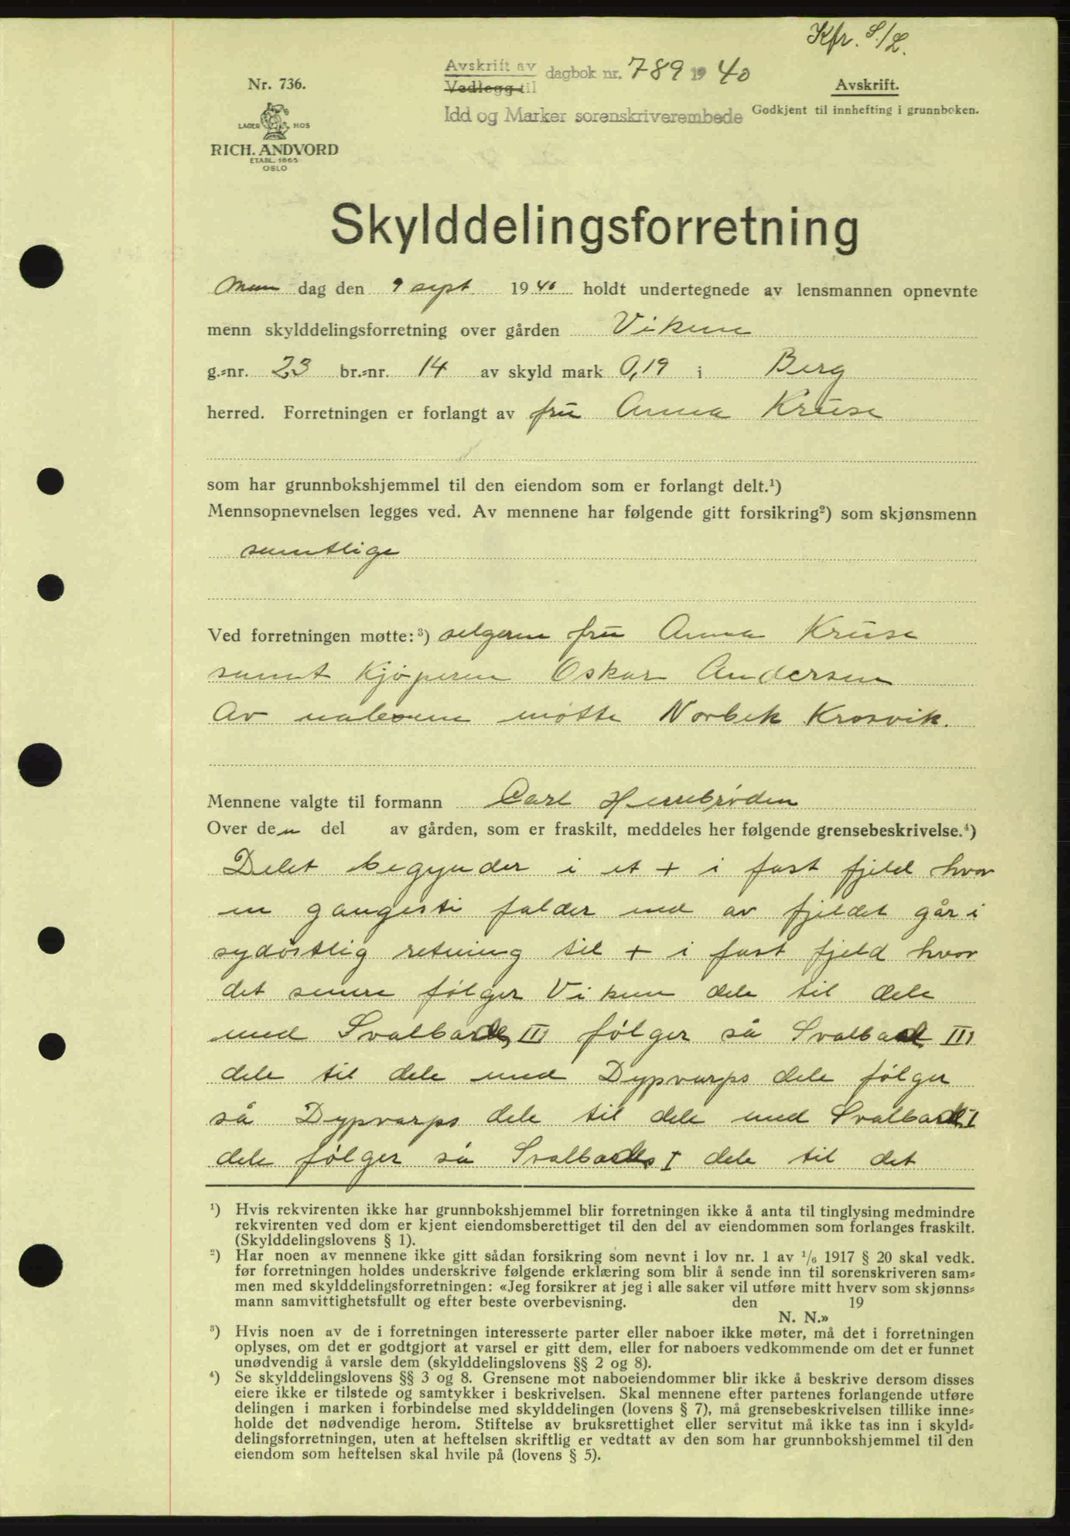 Kfr. S./L.
Nr. 736.
LAGER HOS
RICH. ANDVORD
ETABL. 1865
OSLO
Avskrift av
Vedlegg til
dagbok nr. 789 1940
Idd og Marker sorenskriverembede
Avskrift.
Godkjent til innhefting i grunnboken.
Skylddelingsforretning
Man dag den 9 sept 1940 holdt undertegnede av lensmannen opnevnte
menn skylddelingsforretning over gården Viken
g.=nr. 23 br.=nr. 14 av skyld mark 0,19 i Berg
herred. Forretningen er forlangt av fru Anna Kruse
som har grunnbokshjemmel til den eiendom som er forlangt delt.¹)
Mennsopnevnelsen legges ved. Av mennene har følgende gitt forsikring²) som skjønsmenn
samtlige
Ved forretningen møtte:³) selgeren fru Anna Kruse
samt kjøperen Oskar Andersen
Av naboene møtte Norbek Krosvik.
Mennene valgte til formann Carl Herrebrøden
Over den del av gården, som er fraskilt, meddeles her følgende grensebeskrivelse.⁴)
Delet begynder i et + i fast fjeld hvor
en gangsti falder ned av fjeldet går i
sydøstlig retning til + i fast fjeld hvor
det senere følger Viken dele til dele
med Svalbards II følger så Svalbard II
dele til dele med Dypvarps dele følger
så Dypvarps dele til dele med Svalbards I
dele følger så Svalbards I dele til det
¹) Hvis rekvirenten ikke har grunnbokshjemmel blir forretningen ikke å anta til tinglysing medmindre
rekvirenten ved dom er kjent eiendomsberettiget til den del av eiendommen som forlanges fraskilt.
(Skylddelingslovens § 1).
²) Har noen av mennene ikke gitt sådan forsikring som nevnt i lov nr. 1 av ¹/₆ 1917 § 20 skal vedk.
før forretningen holdes underskrive følgende erklæring som blir å sende inn til sorenskriveren sam=
men med skylddelingsforretningen: «Jeg forsikrer at jeg i alle saker vil utføre mitt hverv som skjønns=
mann samvittighetsfullt og efter beste overbevisning. den 19
N. N.»
³) Hvis noen av de i forretningen interesserte parter eller naboer ikke møter, må det i forretningen
oplyses, om det er godtgjort at varsel er gitt dem, eller for naboers vedkommende om det er funnet
unødvendig å varsle dem (skylddelingslovens §§ 2 og 8).
⁴) Se skylddelingslovens §§ 3 og 8. Grensene mot naboeiendommer blir ikke å beskrive dersom disses
eiere ikke er tilstede og samtykker i beskrivelsen. Skal mennene efter partenes forlangende utføre
delingen i marken i forbindelse med skylddelingen (lovens § 7), må grensebeskrivelsen tillike inne=
holde det nødvendige herom. Stiftelse av bruksrettighet eller servitut må ikke tas inn i skyld=
delingsforretningen, uten at heftelsen skriftlig er vedtatt av den som har grunnbokshjemmel til den
eiendom som heftelsen skal hvile på (lovens § 5).